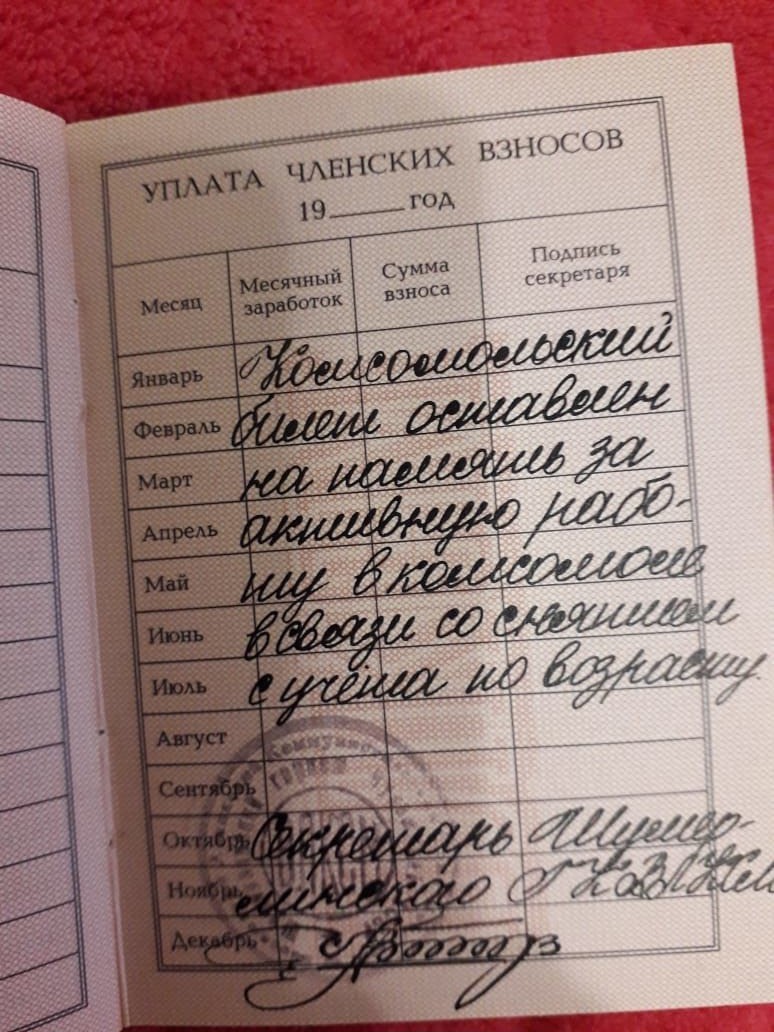 УПЛАТА ЧЛЕНСКИХ ВЗНОСОВ
19____год
Месяц Месячный заработок Сумма взноса Подпись секретаря
Январь Комсомольский
Февраль билет оставлен
Март на память за
Апрель активную рабо-
Май ту в комсомоле
Июнь в связи со снятием
Июль с учёта по возрасту.
Август
Сентябрь
Октябрь Секретарь Шумер-
Ноябрь линского ГК ВЛКСМ
Декабрь